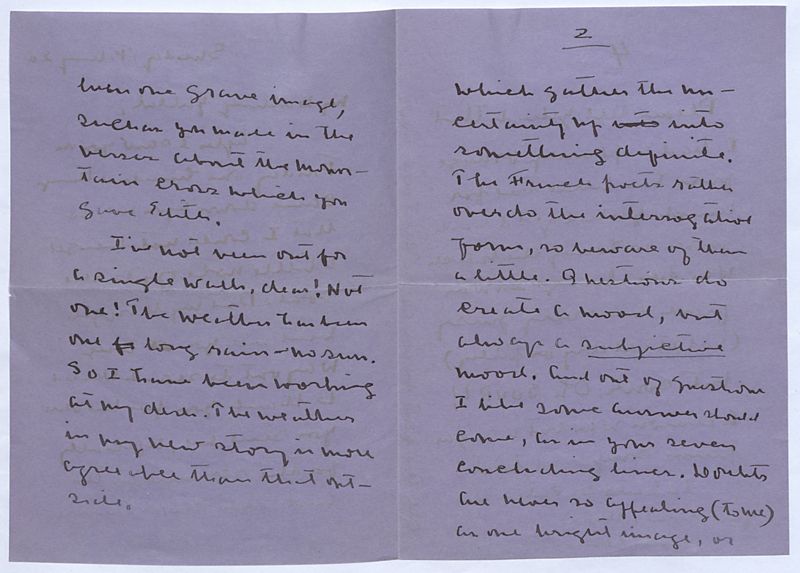 2
which gather the un-
certainty up into into
something definite.
The French poets rather
overdo the interrogative
form, so beware of them
a little. Questions do
create a mood, but
always a subjective
mood. And out of questions
I like some answer should
come, as in your seven
concluding lines. Doubts
are never so appealing (to me)
as one bright image, or
even one grave image,
such as you made in the
verses about the moun-
tain cross which you
gave Edith.
I've not been out for
a single walk, dear! Not
one! The weather has been
one long rain - no sun.
So I have been working
at my desk. The weather
in my new story is more
agreeable than that out-
side.